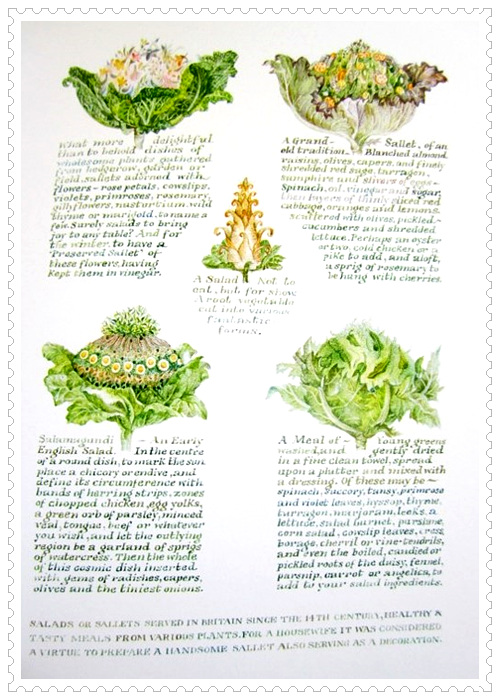 What more delightful
than to behold dishes of
wholesome plants gathered
from hedgerow, garden or
field, sallets adorned with
flowers - rose petals, cowslips,
violets, primroses, rosemary,
gillyflowers, nasturtium, wild
thyme or marigold, to name a
few. Surely salads to bring
joy to any table? And for
the winter, to have a
"Preserved Sallet" of
these flowers, having
kept them in vinegar.
A Grand - Sallet, of an
old tradition. Blanched almond,
raisins, olives, capers, and finely
shredded red sage, tarragon,
samphire and slivers of eggs -
Spinach, oil, vinegar and sugar
then layers of thinly sliced red
cabbage, oranges and lemons,
scattered with olives, pickled -
cucumbers and shredded
lettuce. Perhaps an oyster
or two, cold chicken or a
pike to add, and aloft,
a sprig of rosemary to
be hung with cherries.
A Salad Not to
eat, but for show
A root vegetable
cut into various
fantastic
forms.
Salmagundi - An Early
English Salad. In the centre
of a round dish, to mark the sun
place a chicory or endive, and
define its circumference with
bands of herring strips, zones
of chopped chicken, egg yolks,
a green orb of parsley, minced
veal, tongue, beef or whatever
you wish, and let the outlying
region be a garland of sprigs
of watercress. Then the whole
of this cosmic dish inserted
with gems of radishes, capers,
olives and the tiniest onions.
A Meal of - Young greens
washed, and gently dried
in a fine clean towel, spread
upon a platter and mixed with
a dressing. Of these may be -
spinach, succory, tansy, primrose
and violet leaves, hyssop, thyme,
tarragon, marjoram, leeks, a
lettuce, salad burnet, purslane,
corn salad, cowslip leaves, cress,
borage, chervil or vine-tendrils,
and even the boiled, candied or
pickled roots of the daisy, fennel,
parsnip, carrot or angelica, to
add to your salad ingredients.
SALADS OR SALLETS SERVED IN BRITAIN SINCE THE 14TH CENTURY, HEALTHY &
TASTY MEALS FROM VARIOUS PLANTS. FOR A HOUSEWIFE IT WAS CONSIDERED
A VIRTUE TO PREPARE A HANDSOME SALLET ALSO SERVING AS A DECORATION.